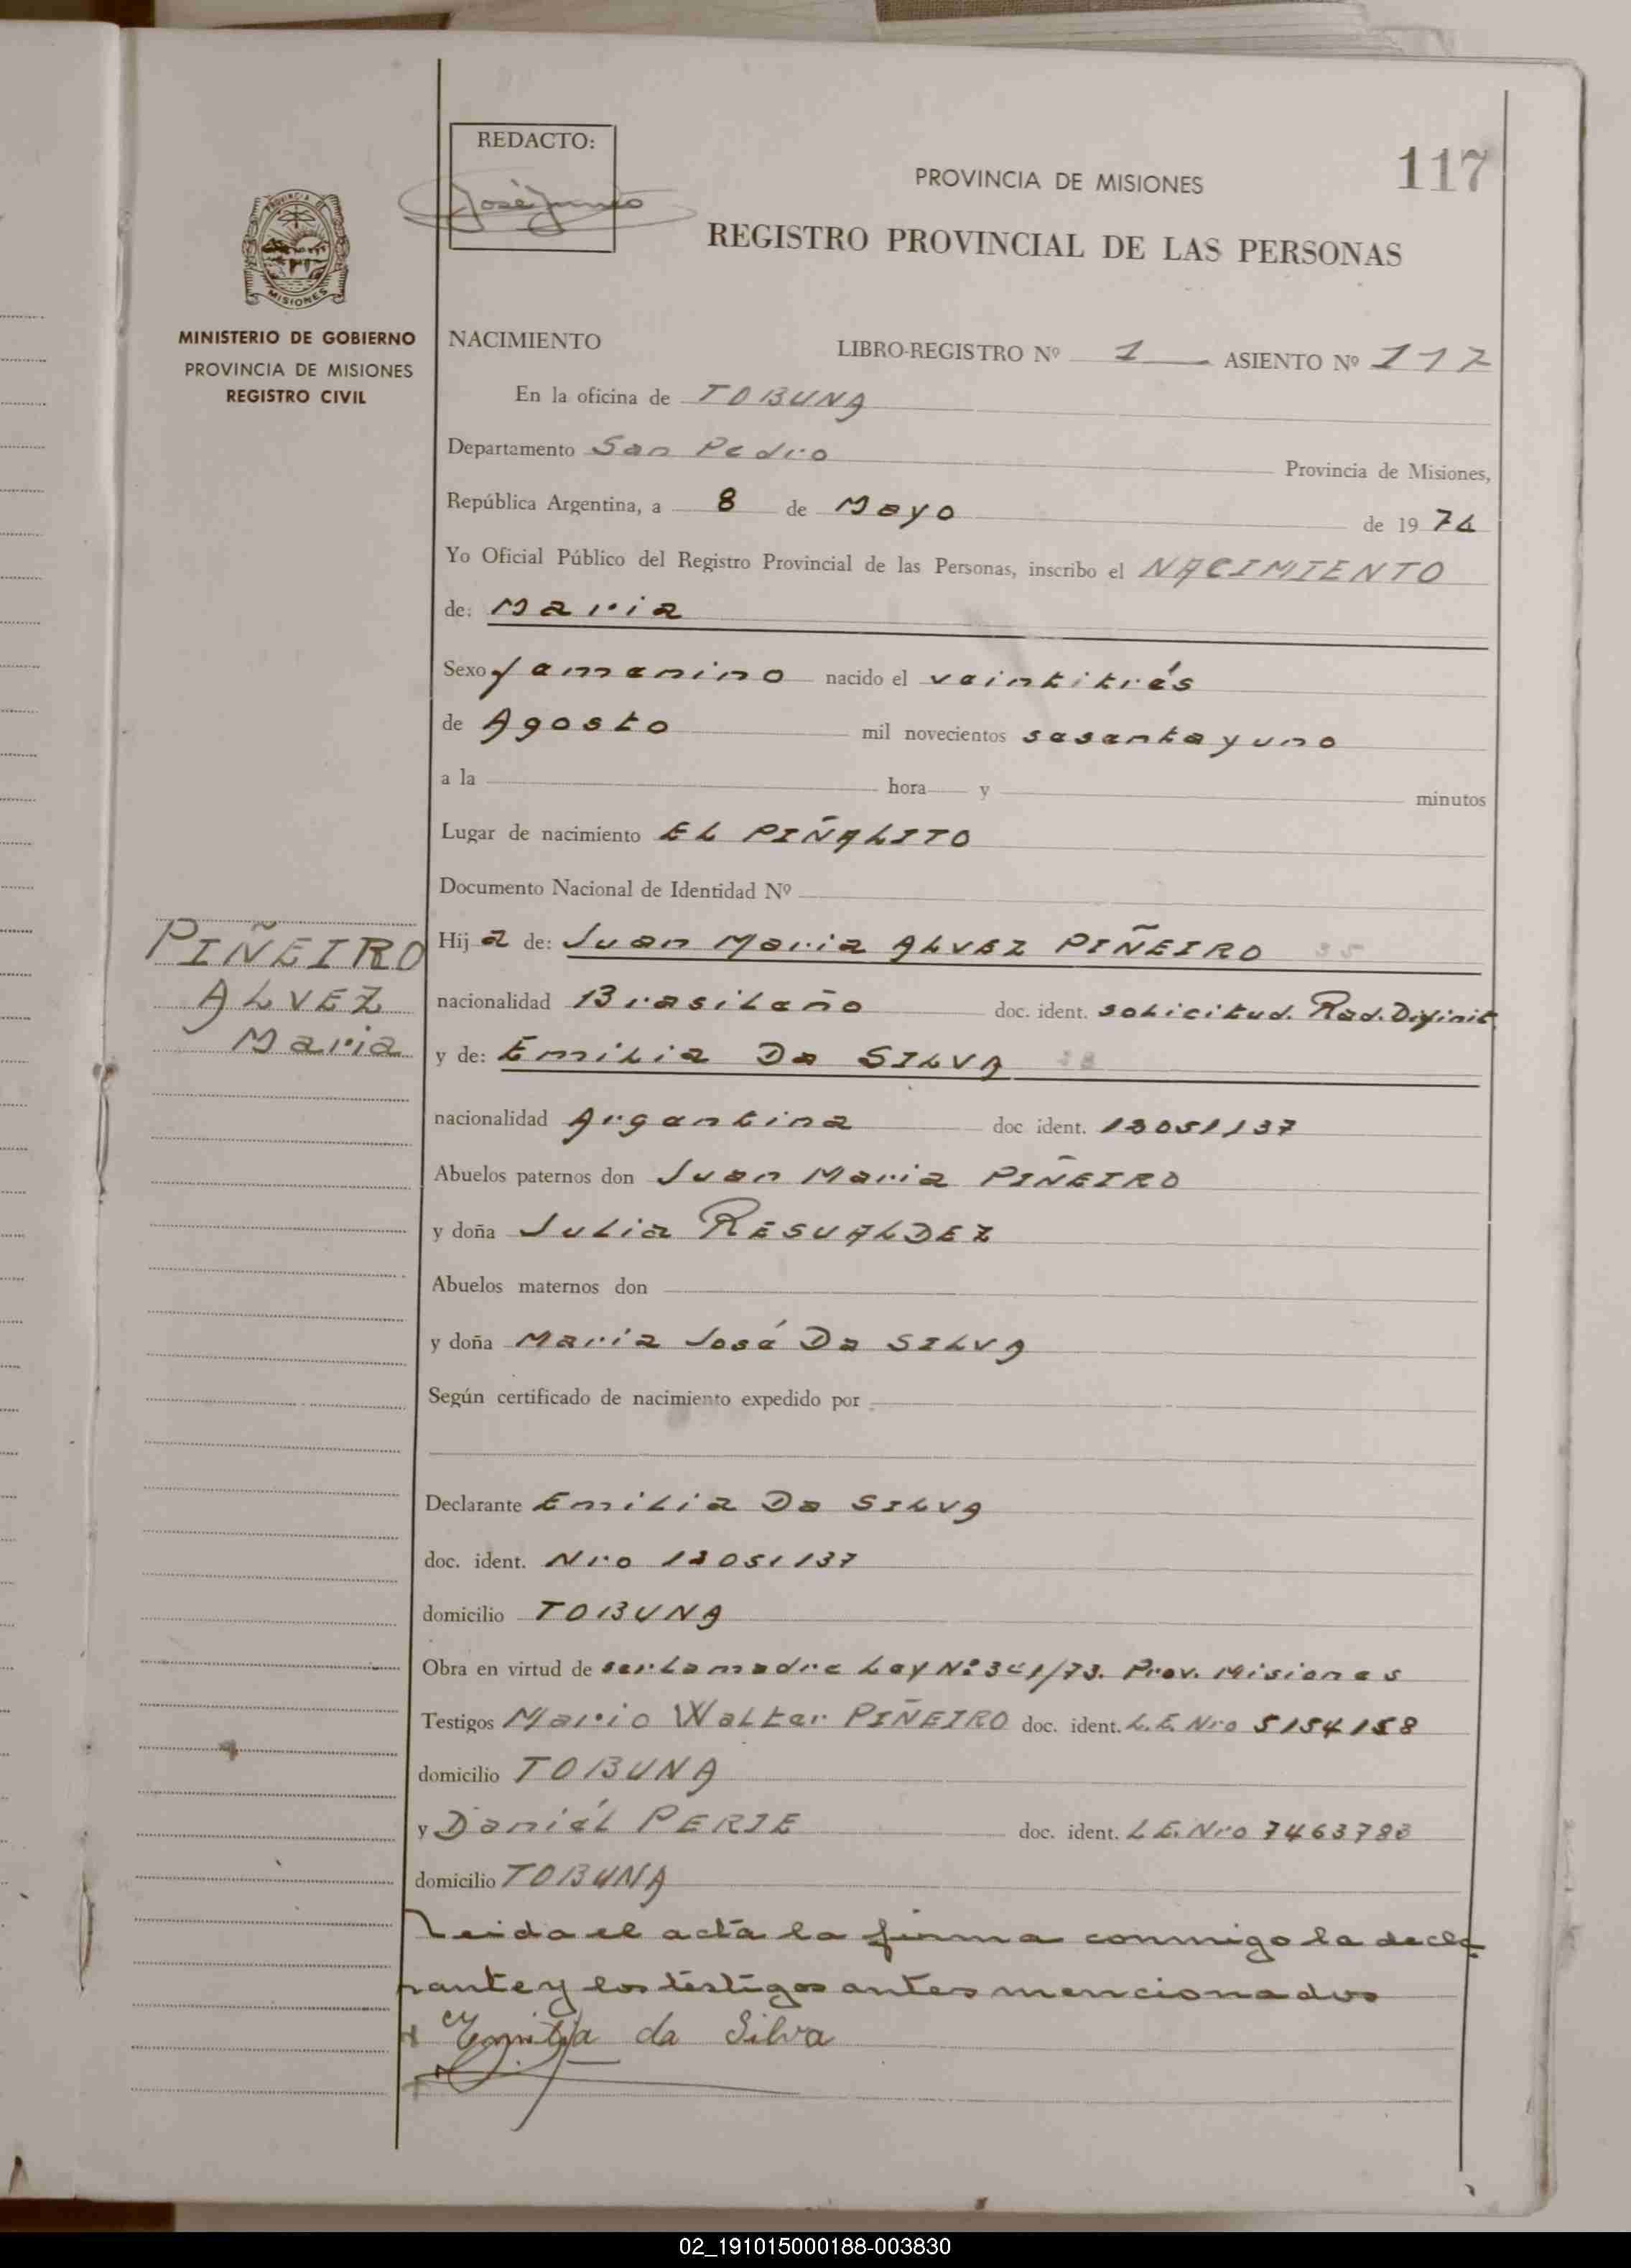 117
REDACTO:
PROVINCIA DE MISIONES
REGISTRO PROVINCIAL DE LAS PERSONAS
PROVINCIA DE
MISIONES
MINISTERIO DE GOBIERNO
PROVINCIA DE MISIONES
REGISTRO CIVIL
NACIMIENTO LIBRO-REGISTRO Nº 1 ASIENTO Nº 117
En la oficina de TOBUNA
Departamento San Pedro Provincia de Misiones,
República Argentina, a 8 de Mayo de 19 74
Yo Oficial Público del Registro Provincial de las Personas, inscribo el NACIMIENTO
de: Maria
Sexo femenino nacido el veintitrés
de Agosto mil novecientos sesenta y uno
a la hora y minutos
Lugar de nacimiento EL PIÑALITO
Documento Nacional de Identidad Nº
PIÑEIRO
ALVEZ
Maria
Hij a de: Juan Maria ALVEZ PIÑEIRO 35
nacionalidad Brasileño doc. ident. solicitud. Rad. Difinit.
y de: Emilia Da SILVA
nacionalidad Argentina doc. ident. 13051137
Abuelos paternos don Juan Maria PIÑEIRO
y doña Julia RESUALDEZ
Abuelos maternos don
y doña Maria José Da SILVA
Según certificado de nacimiento expedido por
Declarante Emilia Da SILVA
doc. ident. Nro 13051137
domicilio TOBUNA
Obra en virtud de ser la madre Ley Nº 341/73. Prov. Misiones
Testigos Mario Walter PIÑEIRO doc. ident. L.E. Nro 5154158
domicilio TOBUNA
y Daniél PERIE doc. ident. L.E. Nro
domicilio TOBUNA
Leida el acta la firma conmigo la decla
rante y los testigos antes mencionados
Emilia da Silva
02_191015000188-003830